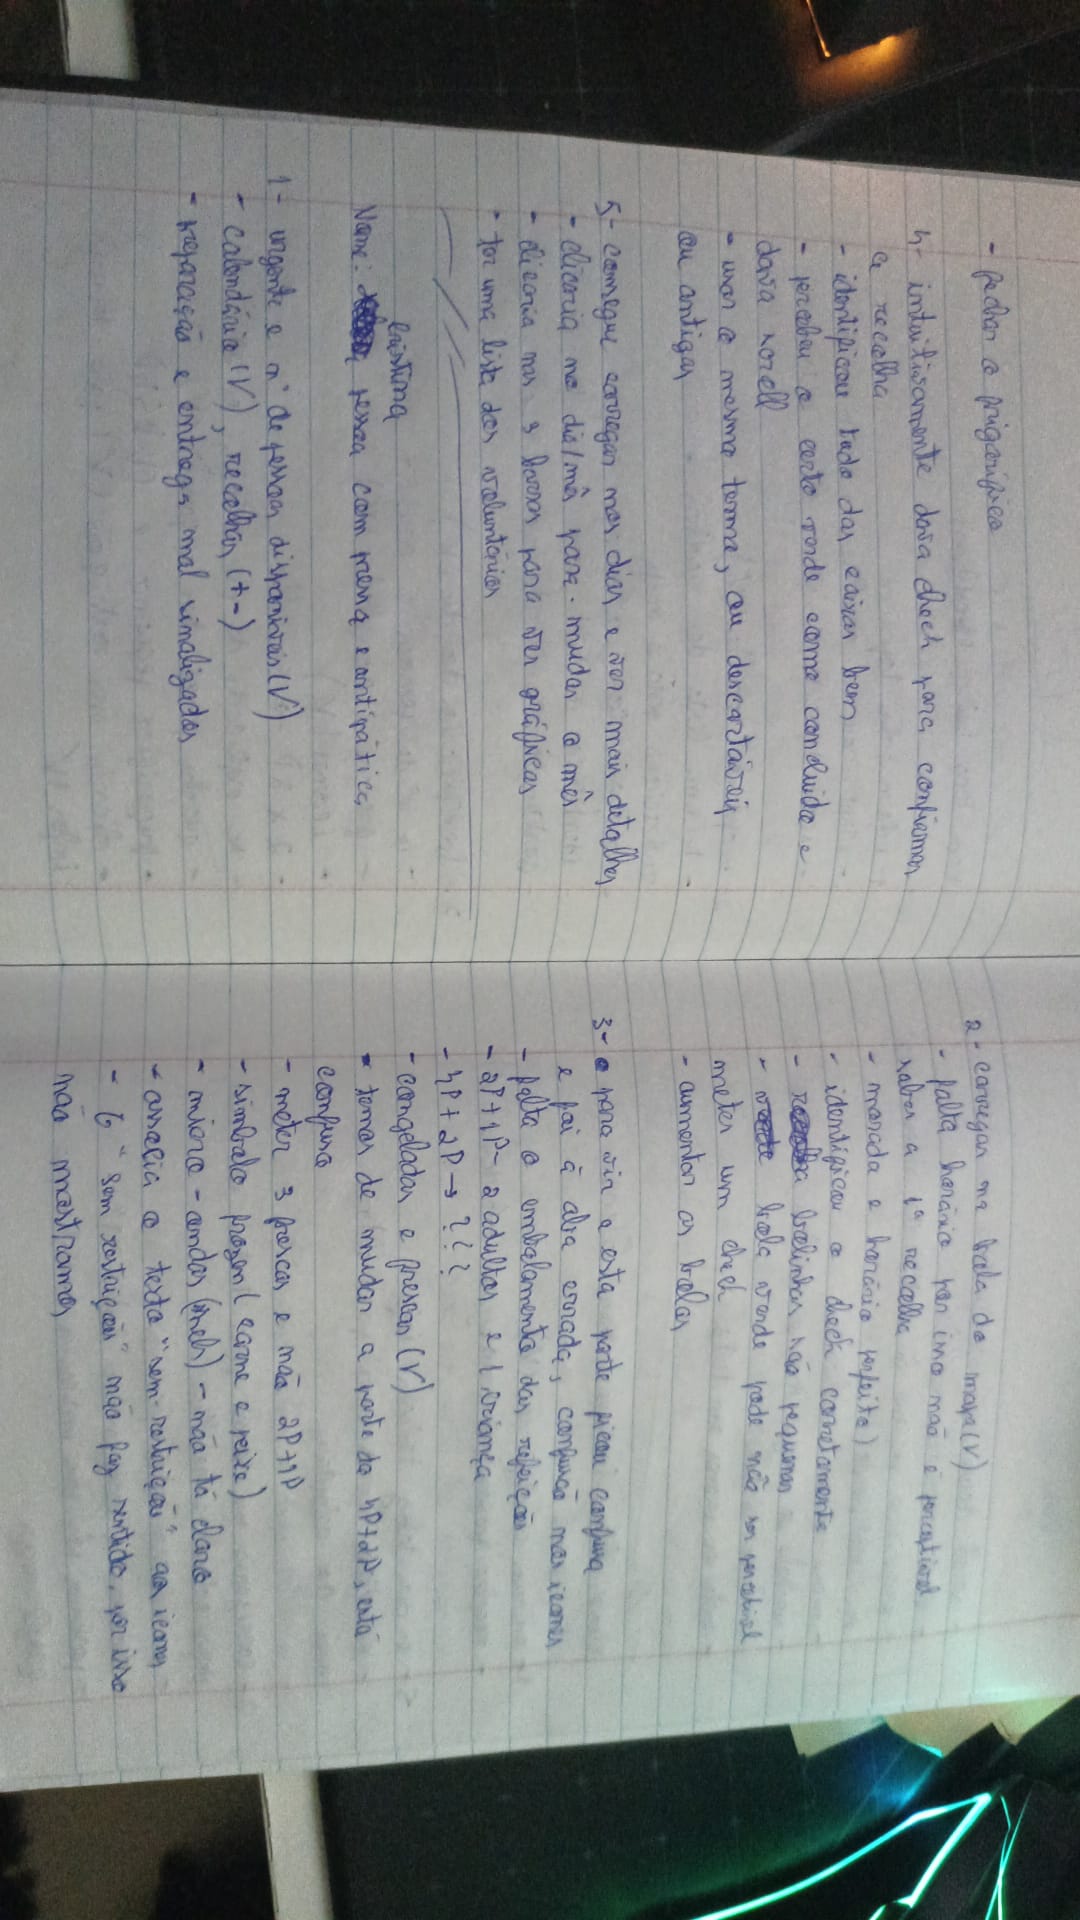 - fechar o frigorífico
4- intuitivamente dava check para confirmar
a recolha
- identificou tudo das caixas bem
- percebeu o certo verde como concluida e
dava scroll
- usar o mesmo termo, ou descartáveis
ou antigas
5- consegue carregar nos dias e ver mais detalhes
- clicaria no dia/mês para mudar o mês
- clicaria nas barras para ver gráficos
- ter uma lista dos voluntários
Cristina
Nome: pessoa com pressa e antipática
1- urgente e nº de pessoas disponíveis (V)
- calendário (V), recolhas (+-)
- preparação e entrega mal sinalizados
2- carregar na bola do mapa (V)
- falta horário por isso não é perceptível
saber a 1ª recolha
- morada e horário perfeito)
- identificou o check corretamente
- bolinhas são pequenas
- bola verde pode não ser perceptível
meter um check
- aumentar as bolas
3- para vir a esta parte ficou confusa
e foi à aba errada, confusão nos icones
- falta o embalamento das refeições
- 2P+1P- 2 adultos e 1 criança
- 4P+2P → ???
- congeladas e frescas (V)
- temos de mudar a parte do 4P+2P, está
confuso
- meter 3 frescas e não 2P+1P
- simbolo frozen (carne e peixe)
- micro-ondas - não tá claro
- associa o texto "sem-restrição" aos icones
- 6 "sem restrições" não faz sentido, por isso
não mostramos